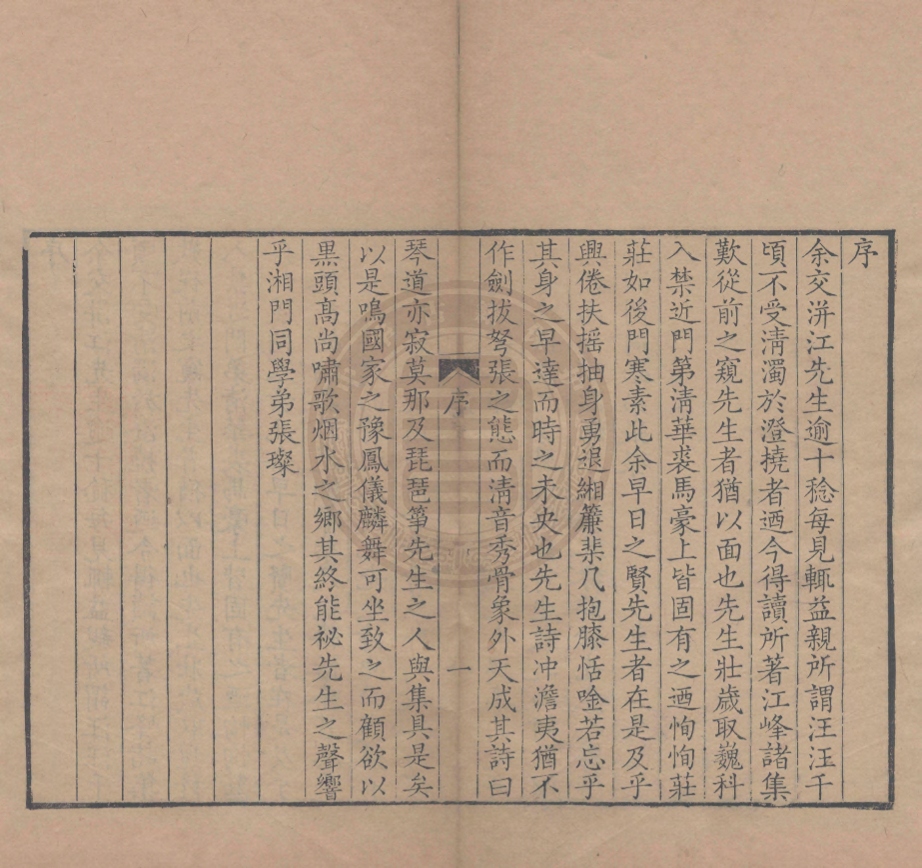 序
余交洴江先生逾十稔每見輒益親所謂汪汪千
頃不受淸濁於澄撓者迺今得讀所著江峰諸集
歎從前之窺先生者猶以面也先生壯歲取巍科
入禁近門第淸華裘馬豪上皆固有之迺恂恂莊
莊如後門寒素此余早日之賢先生者在是及乎
興倦扶摇抽身勇退緗簾棐几抱膝恬唫若忘乎
其身之早達而時之未央也先生詩冲澹夷猶不
作劍拔弩張之態而淸音秀骨象外天成其詩曰
序
一
琴道亦寂莫那及琵琶箏先生之人與集具是矣
以是鳴國家之豫鳳儀麟舞可坐致之而顧欲以
黒頭髙尚嘯歌烟水之鄉其終能祕先生之聲響
乎湘門同學弟張璨